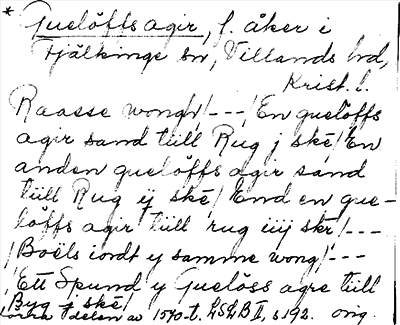 * Guelöffs agir, f. åker i
Fjälkinge sn, Villands hd,
Krist. l.
Raasse wongh/ --- /En guelöffs
agir sand tiill Rug j skè/ En
anden guelöffs agir sand
tiill Rug ij skè/ End en gue-
löffs agir tiill rug iiij skr/ ---
/Boëls iordt y samme wong/ ---
/Ett Spund y Guelöss agre tiill
Byg j skè/
delen av 1570-t. LSLB II, s 192. orig.